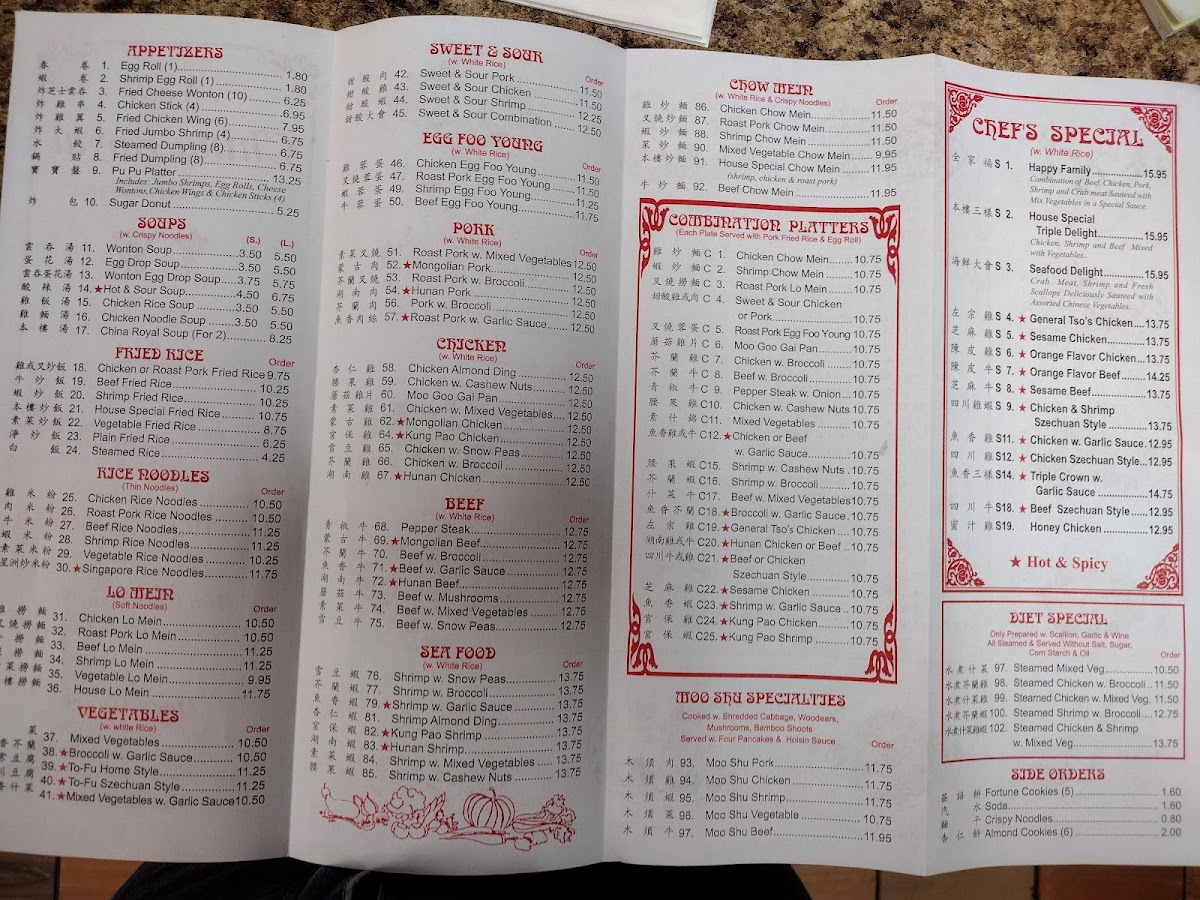 APPETIZERS
春 卷 1. Egg Roll (1) 1.80
蝦 卷 2. Shrimp Egg Roll (1) 1.80
炸芝士雲吞 3. Fried Cheese Wonton (10) 6.25
炸 雞 串 4. Chicken Stick (4) 6.95
炸 雞 翼 5. Fried Chicken Wing (6) 7.95
炸 大 蝦 6. Fried Jumbo Shrimp (4) 6.75
水 餃 7. Steamed Dumpling (8) 6.75
鍋 貼 8. Fried Dumpling (8) 6.75
寶 寶 盤 9. Pu Pu Platter 13.25
Includes: Jumbo Shrimps, Egg Rolls, Cheese
Wontons, Chicken Wings & Chicken Sticks (4)
炸 包 10. Sugar Donut 5.25
SOUPS
(w. Crispy Noodles) (S.) (L.)
雲 吞 湯 11. Wonton Soup 3.50 5.50
蛋 花 湯 12. Egg Drop Soup 3.50 5.50
雲吞蛋花湯 13. Wonton Egg Drop Soup 3.75 5.75
酸 辣 湯 14. ★Hot & Sour Soup 4.50 6.75
雞 飯 湯 15. Chicken Rice Soup 3.50 5.50
雞 麵 湯 16. Chicken Noodle Soup 3.50 5.50
本 樓 湯 17. China Royal Soup (For 2) 8.25
FRIED RICE
Order
雞或叉炒飯 18. Chicken or Roast Pork Fried Rice 9.75
牛 炒 飯 19. Beef Fried Rice 10.25
蝦 炒 飯 20. Shrimp Fried Rice 10.25
本樓炒飯 21. House Special Fried Rice 10.75
素菜炒飯 22. Vegetable Fried Rice 8.75
淨 炒 飯 23. Plain Fried Rice 6.25
白 飯 24. Steamed Rice 4.25
RICE NOODLES
(Thin Noodles) Order
雞 米 粉 25. Chicken Rice Noodles 10.50
肉 米 粉 26. Roast Pork Rice Noodles 10.50
牛 米 粉 27. Beef Rice Noodles 11.25
蝦 米 粉 28. Shrimp Rice Noodles 11.25
素菜米粉 29. Vegetable Rice Noodles 10.25
星洲炒米粉 30. ★Singapore Rice Noodles 11.75
LO MEIN
(Soft Noodles) Order
雞 撈 麵 31. Chicken Lo Mein 10.50
叉燒撈麵 32. Roast Pork Lo Mein 10.50
牛 撈 麵 33. Beef Lo Mein 11.25
撈 麵 34. Shrimp Lo Mein 11.25
菜撈麵 35. Vegetable Lo Mein 9.95
樓撈麵 36. House Lo Mein 11.75
VEGETABLES
(w. white Rice) Order
菜 37. Mixed Vegetables 10.50
香芥蘭 38. ★Broccoli w. Garlic Sauce 10.50
常豆腐 39. ★To-Fu Home Style 11.25
川豆腐 40. ★To-Fu Szechuan Style 11.25
香什菜 41. ★Mixed Vegetables w. Garlic Sauce 10.50
SWEET & SOUR
(w. White Rice) Order
甜 酸 肉 42. Sweet & Sour Pork 11.50
甜 酸 雞 43. Sweet & Sour Chicken 11.50
甜 酸 蝦 44. Sweet & Sour Shrimp 12.25
甜酸大會 45. Sweet & Sour Combination 12.50
EGG FOO YOUNG
(w. White Rice)
雞 蓉 蛋 46. Chicken Egg Foo Young 11.50
叉燒蓉蛋 47. Roast Pork Egg Foo Young 11.50
蝦 蓉 蛋 49. Shrimp Egg Foo Young 11.25
牛 蓉 蛋 50. Beef Egg Foo Young 11.75
PORK
(w. White Rice)
素菜叉燒 51. Roast Pork w. Mixed Vegetables 12.50
蒙 古 肉 52. ★Mongolian Pork 12.50
芥蘭叉燒 53. Roast Pork w. Broccoli 12.50
湖 南 肉 54. ★Hunan Pork 12.50
芥 蘭 肉 56. Pork w. Broccoli 12.50
魚香肉絲 57. ★Roast Pork w. Garlic Sauce 12.50
CHICKEN
(w. White Rice) Order
杏 仁 雞 58. Chicken Almond Ding 12.50
腰 果 雞 59. Chicken w. Cashew Nuts 12.50
蘑菇雞片 60. Moo Goo Gai Pan 12.50
素 菜 雞 61. Chicken w. Mixed Vegetables 12.50
蒙 古 雞 62. ★Mongolian Chicken 12.50
宮 保 雞 64. ★Kung Pao Chicken 12.50
雪 豆 雞 65. Chicken w. Snow Peas 12.50
芥 蘭 雞 66. Chicken w. Broccoli 12.50
湖 南 雞 67. ★Hunan Chicken 12.50
BEEF
(w. White Rice) Order
青 椒 牛 68. Pepper Steak 12.75
蒙 古 牛 69. ★Mongolian Beef 12.75
芥 蘭 牛 70. Beef w. Broccoli 12.75
魚 香 牛 71. ★Beef w. Garlic Sauce 12.75
湖 南 牛 72. ★Hunan Beef 12.75
蘑 菇 牛 73. Beef w. Mushrooms 12.75
素 菜 牛 74. Beef w. Mixed Vegetables 12.75
雪 豆 牛 75. Beef w. Snow Peas 12.75
SEA FOOD
(w. White Rice) Order
雪 豆 蝦 76. Shrimp w. Snow Peas 13.75
芥 蘭 蝦 77. Shrimp w. Broccoli 13.75
魚 香 蝦 79. ★Shrimp w. Garlic Sauce 13.75
杏 仁 蝦 81. Shrimp Almond Ding 13.75
宮 保 蝦 82. ★Kung Pao Shrimp 13.75
湖 南 蝦 83. ★Hunan Shrimp 13.75
素 菜 蝦 84. Shrimp w. Mixed Vegetables 13.75
腰 果 蝦 85. Shrimp w. Cashew Nuts 13.75
CHOW MEIN
(w. White Rice & Crispy Noodles) Order
雞 炒 麵 86. Chicken Chow Mein 11.50
叉燒炒麵 87. Roast Pork Chow Mein 11.50
蝦 炒 麵 88. Shrimp Chow Mein 11.50
菜 炒 麵 90. Mixed Vegetable Chow Mein 9.95
本樓炒麵 91. House Special Chow Mein 11.95
(shrimp, chicken & roast pork)
牛 炒 麵 92. Beef Chow Mein 11.95
COMBINATION PLATTERS
(Each Plate Served with Pork Fried Rice & Egg Roll)
雞 炒 麵 C 1. Chicken Chow Mein 10.75
蝦 炒 麵 C 2. Shrimp Chow Mein 10.75
叉燒撈麵 C 3. Roast Pork Lo Mein 10.75
甜酸雞或肉 C 4. Sweet & Sour Chicken
or Pork 10.75
叉燒蓉蛋 C 5. Roast Pork Egg Foo Young 10.75
蘑菇雞片 C 6. Moo Goo Gai Pan 10.75
芥 蘭 雞 C 7. Chicken w. Broccoli 10.75
芥 蘭 牛 C 8. Beef w. Broccoli 10.75
青 椒 牛 C 9. Pepper Steak w. Onion 10.75
腰 果 雞 C10. Chicken w. Cashew Nuts 10.75
素 什 錦 C11. Mixed Vegetables 10.75
魚香雞或牛 C12. ★Chicken or Beef
w. Garlic Sauce 10.75
腰 果 蝦 C15. Shrimp w. Cashew Nuts 10.75
芥 蘭 蝦 C16. Shrimp w. Broccoli 10.75
什 菜 牛 C17. Beef w. Mixed Vegetables 10.75
魚香芥蘭 C18. ★Broccoli w. Garlic Sauce 10.75
左 宗 雞 C19. ★General Tso's Chicken 10.75
湖南雞或牛 C20. ★Hunan Chicken or Beef 10.75
四川牛或雞 C21. ★Beef or Chicken
Szechuan Style 10.75
芝 麻 雞 C22. ★Sesame Chicken 10.75
魚 香 蝦 C23. ★Shrimp w. Garlic Sauce 10.75
宮 保 雞 C24. ★Kung Pao Chicken 10.75
宮 保 蝦 C25. ★Kung Pao Shrimp 10.75
MOO SHU SPECIALTIES
Cooked w. Shredded Cabbage, Woodears,
Mushrooms, Bamboo Shoots
Served w. Four Pancakes & Hoisin Sauce Order
木 須 肉 93. Moo Shu Pork 11.75
木 須 雞 94. Moo Shu Chicken 11.75
木 須 蝦 95. Moo Shu Shrimp 11.75
木 須 菜 96. Moo Shu Vegetable 10.75
木 須 牛 97. Moo Shu Beef 11.95
CHEF'S SPECIAL
(w. White Rice)
全 家 福 S 1. Happy Family 15.95
Combination of Beef, Chicken, Pork,
Shrimp and Crab meat Sauteed with
Mix Vegetables in a Special Sauce.
本樓三樣 S 2. House Special
Triple Delight 15.95
Chicken, Shrimp and Beef Mixed
with Vegetables..
海鮮大會 S 3. Seafood Delight 15.95
Crab Meat, Shrimp and Fresh
Scallops Deliciously Sauteed with
Assorted Chinese Vegetables.
左 宗 雞 S 4. ★ General Tso's Chicken 13.75
芝 麻 雞 S 5. ★ Sesame Chicken 13.75
陳 皮 雞 S 6. ★ Orange Flavor Chicken 13.75
陳 皮 牛 S 7. ★ Orange Flavor Beef 14.25
芝 麻 牛 S 8. ★ Sesame Beef 13.75
四川雞蝦 S 9. ★ Chicken & Shrimp
Szechuan Style 13.75
魚 香 雞 S11. ★ Chicken w. Garlic Sauce 12.95
四 川 雞 S12. ★ Chicken Szechuan Style 12.95
魚香三樣 S14. ★ Triple Crown w.
Garlic Sauce 14.75
四 川 牛 S18. ★ Beef Szechuan Style 12.95
蜜 汁 雞 S19. Honey Chicken 12.95
★ Hot & Spicy
DIET SPECIAL
Only Prepared w. Scallion, Garlic & Wine
All Steamed & Served Without Salt, Sugar,
Corn Starch & Oil Order
水煮什菜 97. Steamed Mixed Veg 10.50
水煮芥蘭雞 98. Steamed Chicken w. Broccoli 11.50
水煮什菜雞 99. Steamed Chicken w. Mixed Veg. 11.50
水煮芥蘭蝦 100. Steamed Shrimp w. Broccoli 12.75
水煮什菜雞蝦 102. Steamed Chicken & Shrimp
w. Mixed Veg 13.75
SIDE ORDERS
簽 語 餅 Fortune Cookies (5) 1.60
汽 水 Soda 1.60
麵 干 Crispy Noodles 0.80
杏 仁 餅 Almond Cookies (6) 2.00